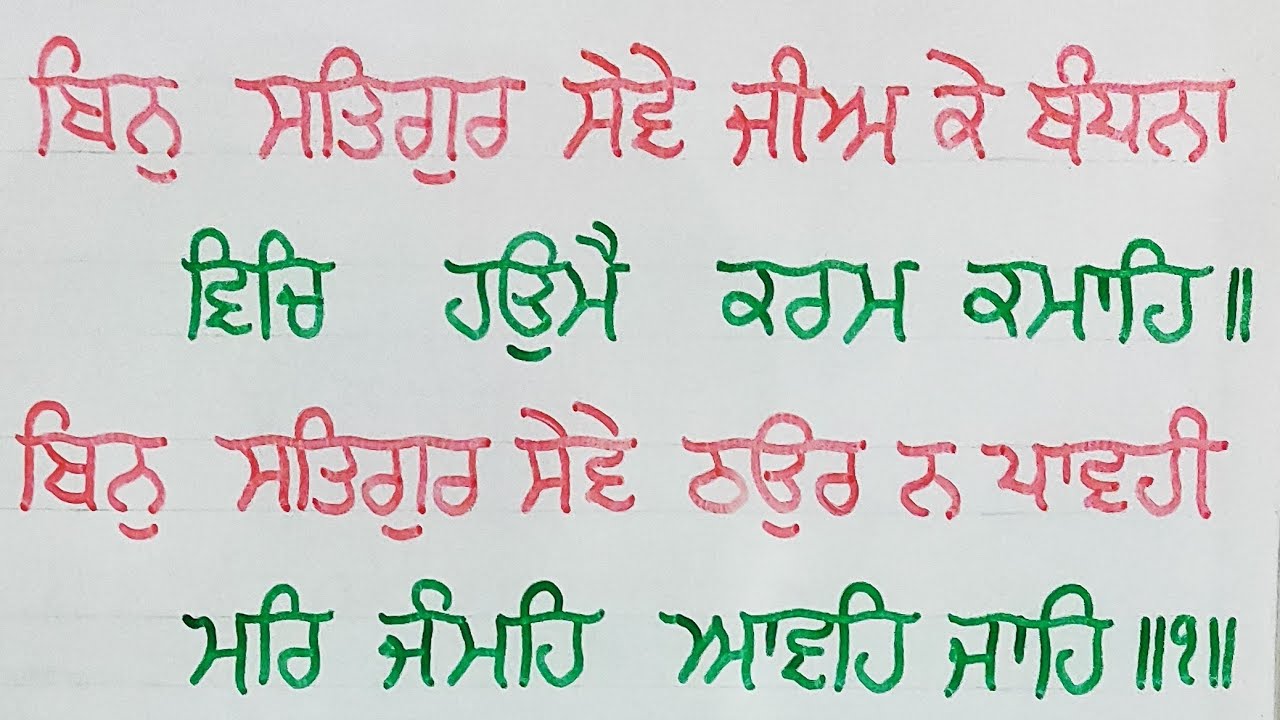 ਬਿਨੁ ਸਤਿਗੁਰ ਸੇਵੇ ਜੀਅ ਕੇ ਬੰਧਨਾ
ਵਿਚਿ ਹਉਮੈ ਕਰਮ ਕਮਾਹਿ॥
ਬਿਨੁ ਸਤਿਗੁਰ ਸੇਵੇ ਠਉਰ ਨ ਪਾਵਹੀ
ਮਰਿ ਜੰਮਹਿ ਆਵਹਿ ਜਾਹਿ॥੧॥